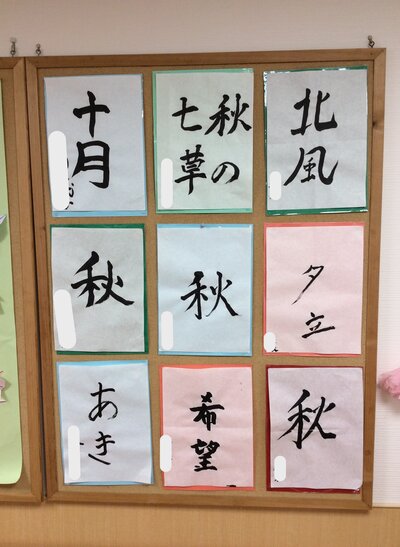 十月
秋の
七草
北風
秋
秋
夕立
あき
希望
秋